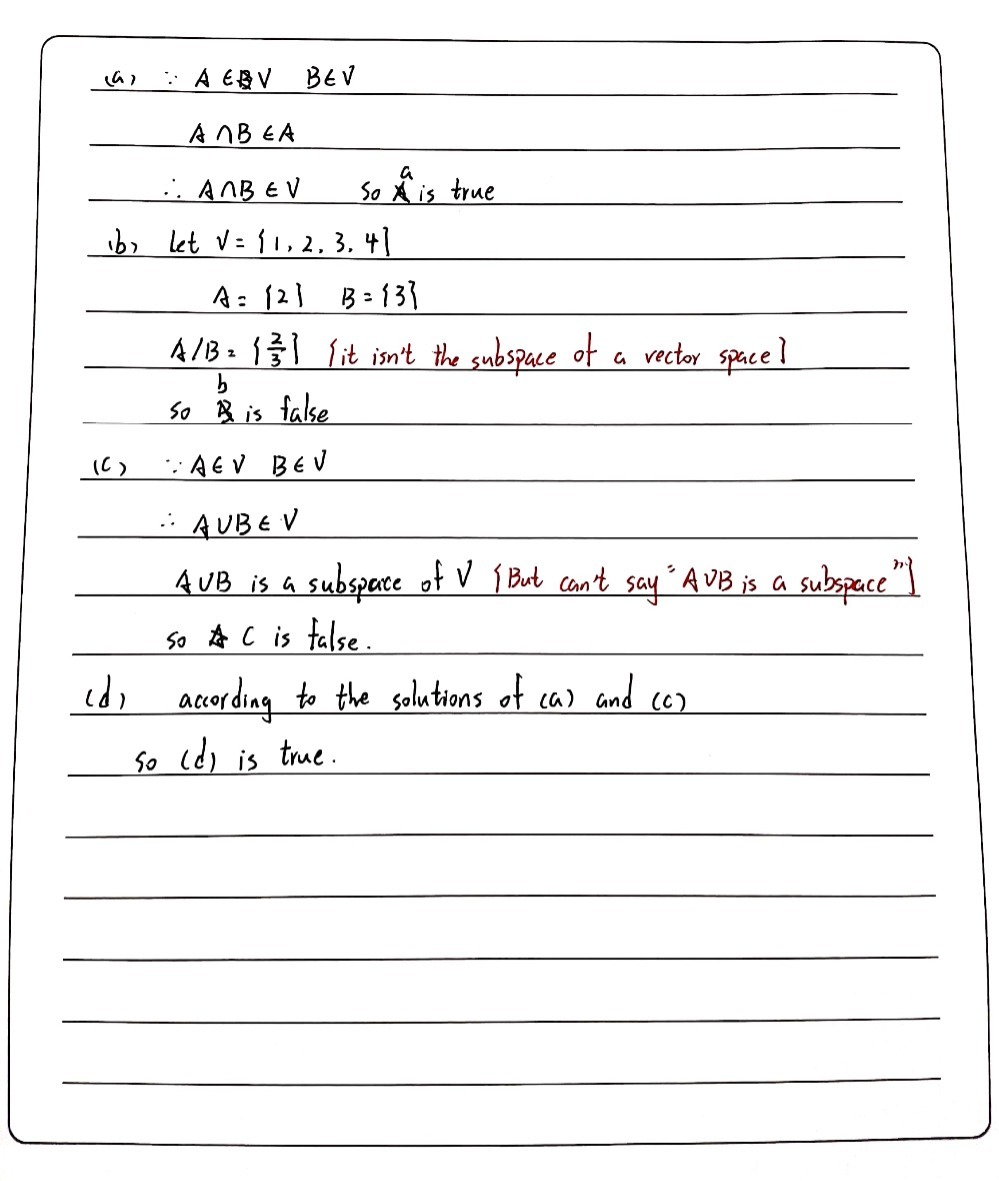 (a) ∵ A ∈ V B∈V
A∩B ∈A
∴ A∩B ∈ V so a is true
(b) let V = {1, 2, 3, 4}
A = {2} B = {3}
A/B = {2/3} {it isn't the subspace of a vector space}
so b is false
(c) ∵ A∈V B∈V
∴ A∪B∈ V
A∪B is a subspace of V {But can't say "A∪B is a subspace"}
so C is false.
(d) according to the solutions of (a) and (c)
so (d) is true.